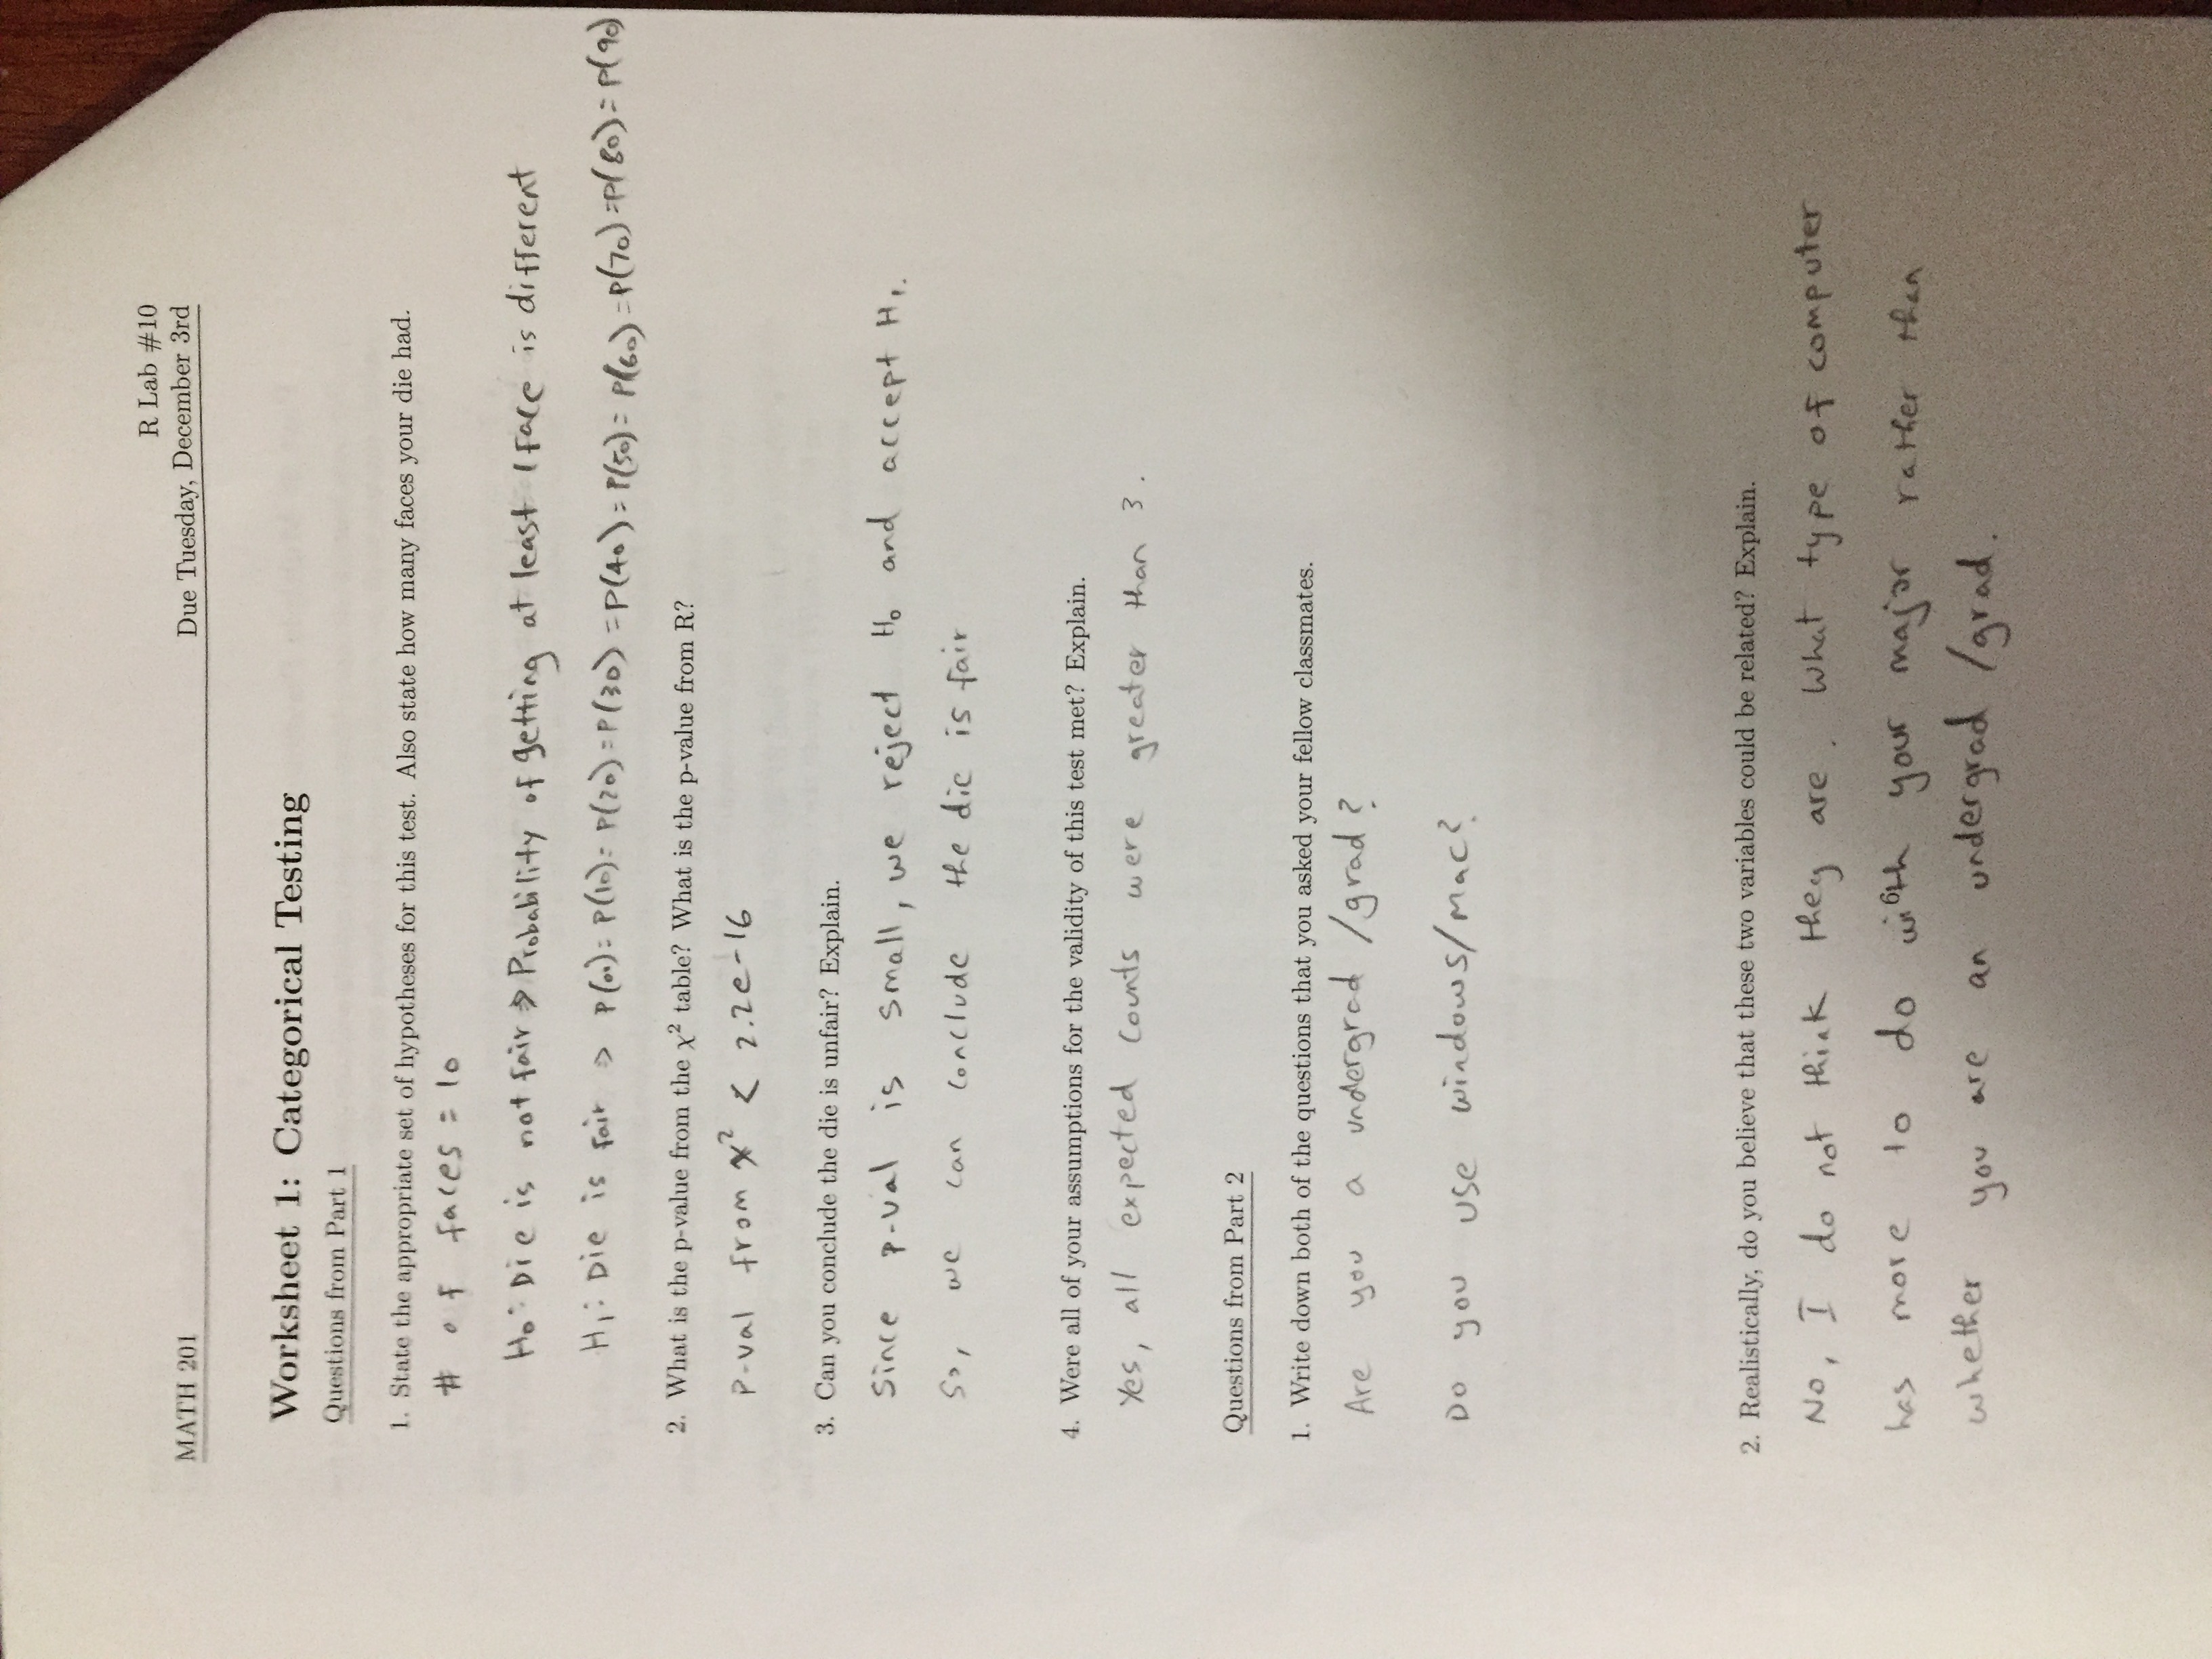 R Lab #10
MATH 201
Due Tuesday, December 3rd
Worksheet 1: Categorical Testing
Questions from Part 1
1. State the appropriate set of hypotheses for this test. Also state how many faces your die had.
# of faces = 10
H₀: Die is not fair ⇒ Probability of getting at least 1 face is different
H₁: Die is fair ⇒ P(00) = P(10) = P(20) = P(30) = P(40) = P(50) = P(60) = P(70) = P(80) = P(90)
2. What is the p-value from the χ² table? What is the p-value from R?
P-val from χ² < 2.2e-16
3. Can you conclude the die is unfair? Explain.
Since p-val is small, we reject H₀ and accept H₁.
So, we can conclude the die is fair
4. Were all of your assumptions for the validity of this test met? Explain.
Yes, all expected counts were greater than 3.
Questions from Part 2
1. Write down both of the questions that you asked your fellow classmates.
Are you a undergrad /grad?
Do you use windows/mac?
2. Realistically, do you believe that these two variables could be related? Explain.
No, I do not think they are. What type of computer
has more to do with your major rather than
6
whether you are an undergrad /grad.